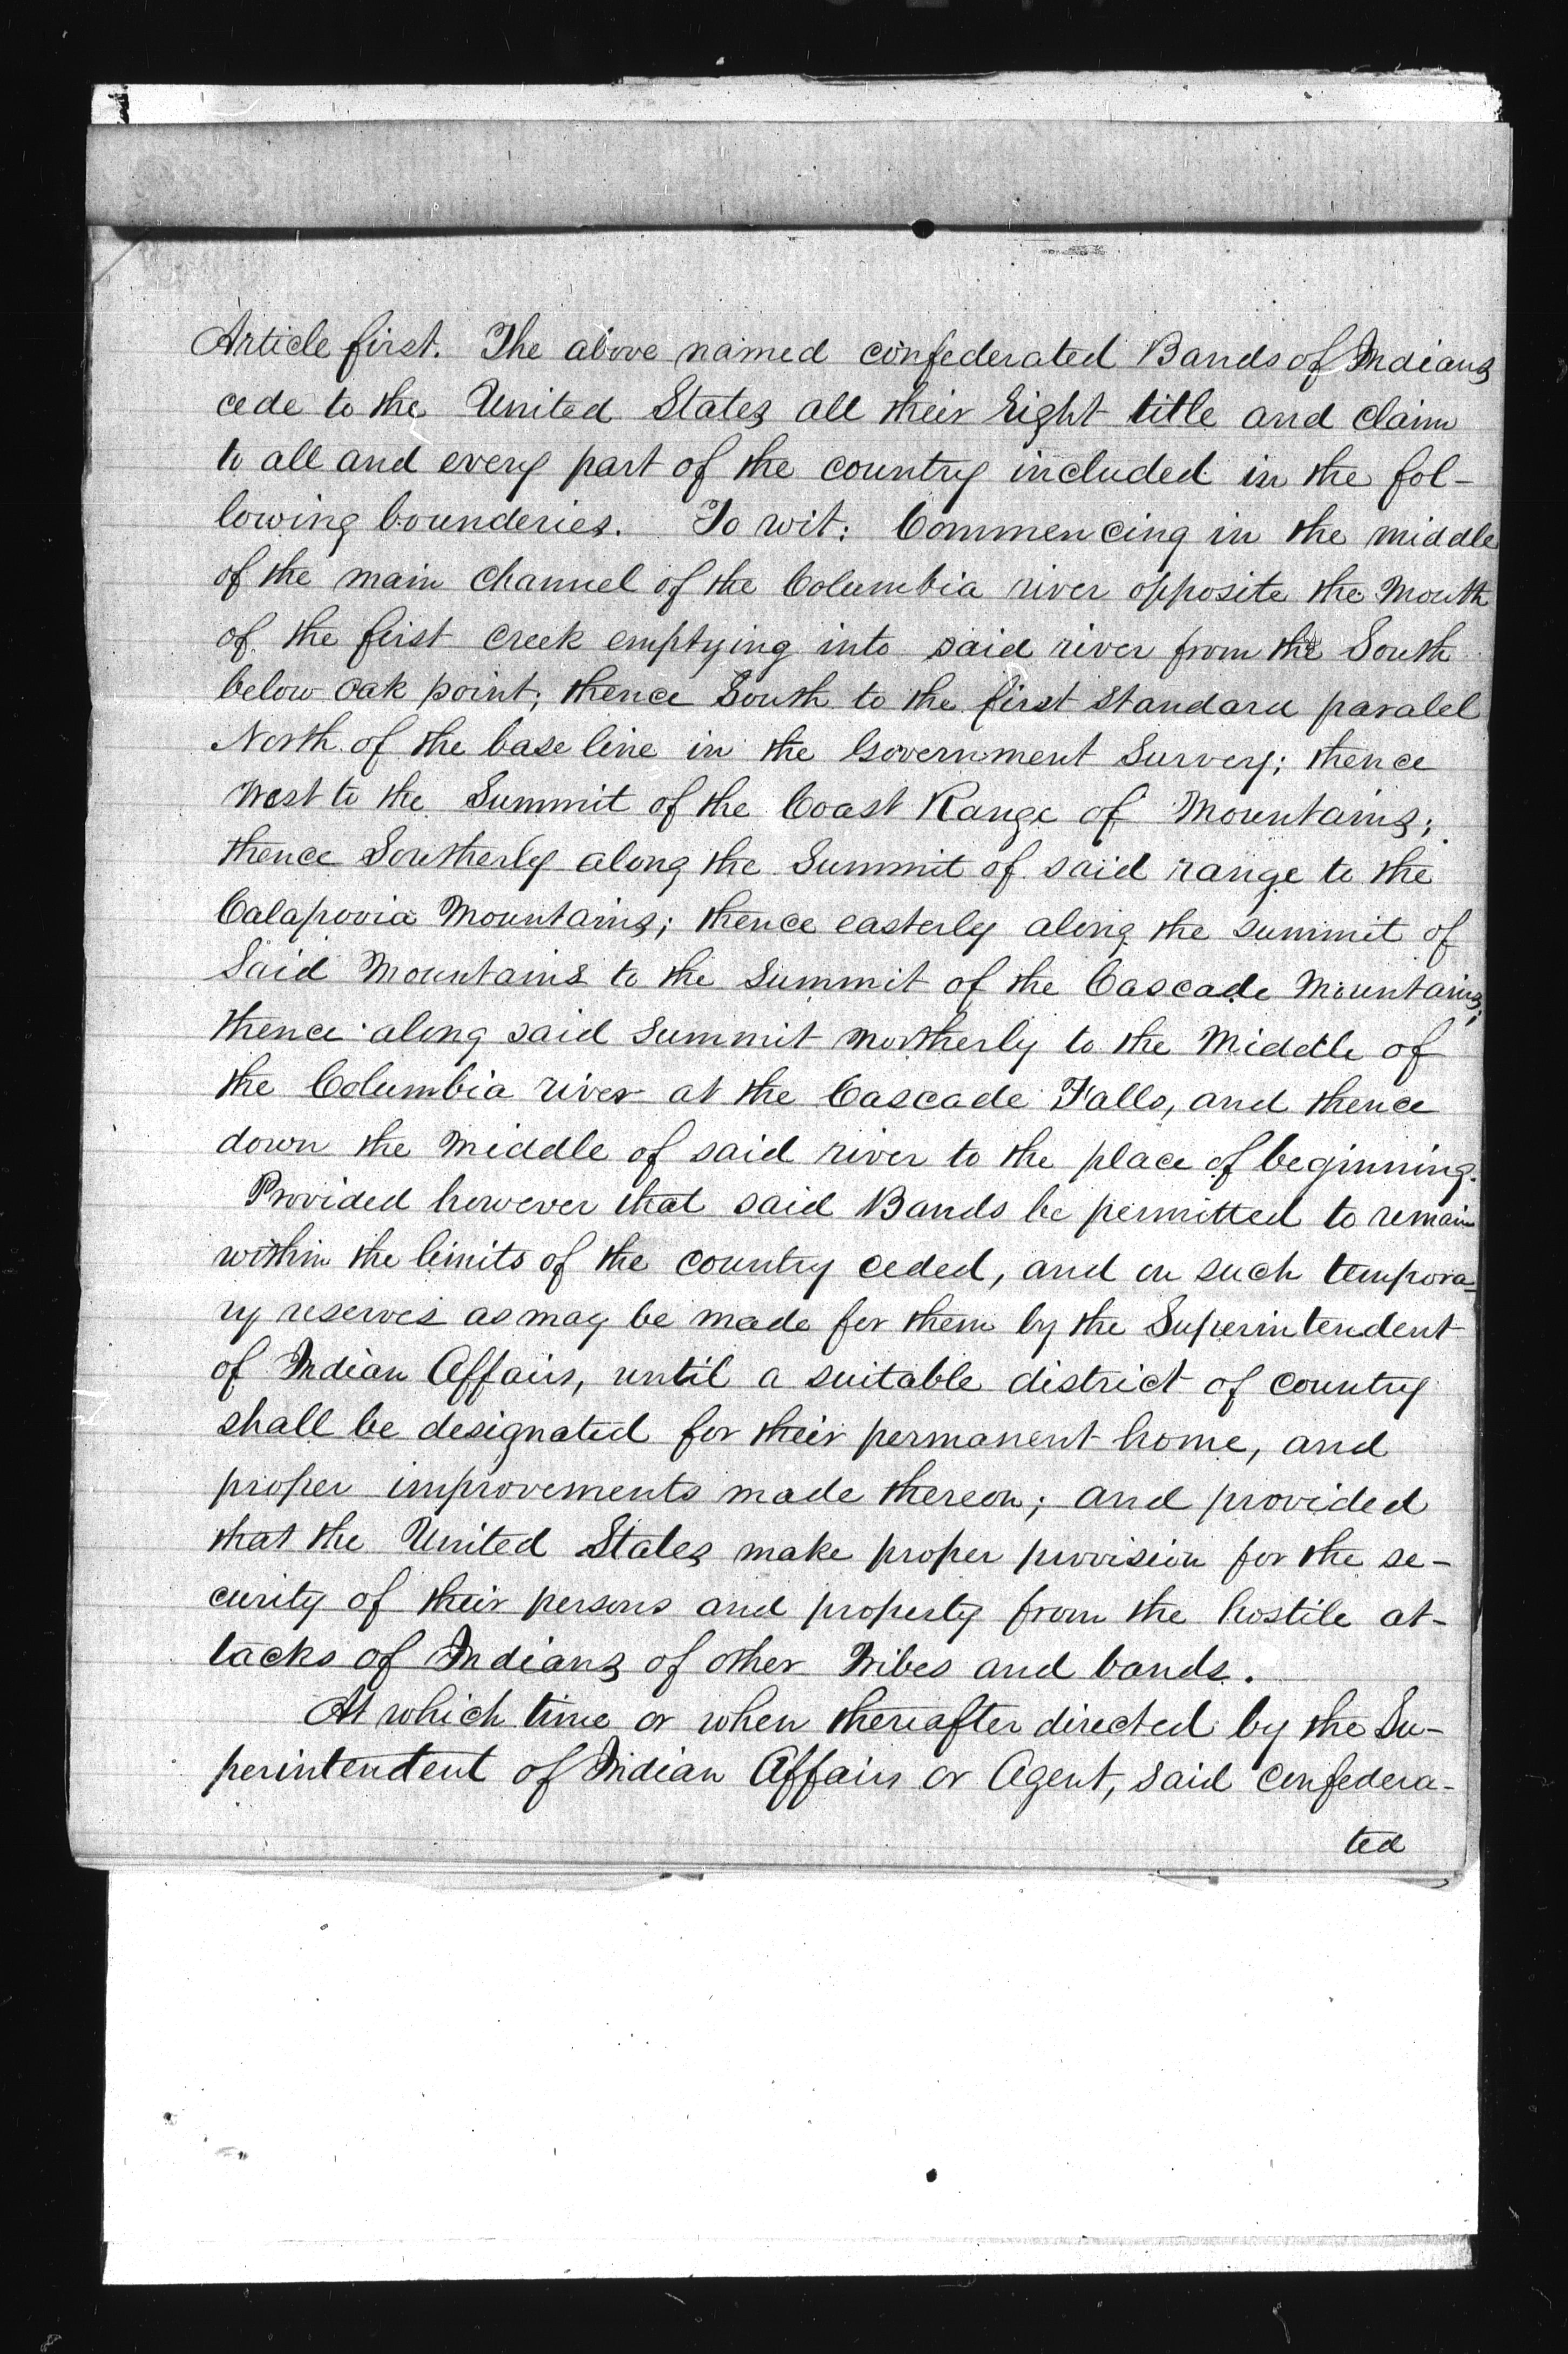 Article first. The above named confederated Bands of Indians
cede to the United States all their right title and claim
to all and every part of the country included in the fol-
lowing bounderies. To wit: Commencing in the middle
of the main channel of the Columbia river opposite the Mouth
of the first creek emptying into said river from the South
below oak point; thence South to the first standard paralel
North of the base line in the Government Survey; thence
West to the Summit of the Coast Range of Mountains;
thence Southerly along the Summit of said range to the
Calapooia Mountains; thence easterly along the summit of
Said Mountains to the Summit of the Cascade Mountains;
thence along said summit northerly to the Middle of
the Columbia river at the Cascade Falls, and thence
down the Middle of said river to the place of beginning.
Provided however that said Bands be permitted to remain
within the limits of the country ceded, and on such tempora-
ry reserves as may be made for them by the Superintendent
of Indian Affairs, until a suitable district of country
shall be designated for their permanent home, and
proper improvements made thereon; and provided
that the United States make proper provision for the se-
curity of their persons and property from the hostile at-
tacks of Indians of other Tribes and bands.
At which time or when thereafter directed by the Su-
perintendent of Indian Affairs or Agent, said confedera-
ted